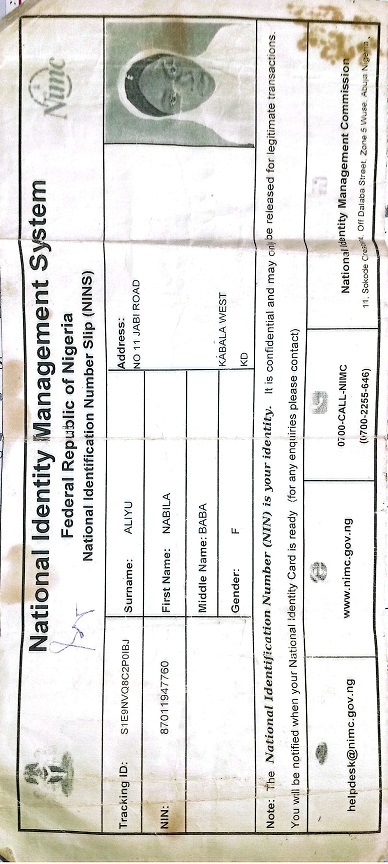 National Identity Management System
Federal Republic of Nigeria
National Identification Number Slip (NINS)
Nimc
Tracking ID: S1E9NVQ8C2P0IBJ
Surname: ALIYU
Address:
NO 11 JABI ROAD
NIN: 87011947760
First Name: NABILA
Middle Name: BABA
KABALA WEST
Gender: F
KD
Note: The National Identification Number (NIN) is your identity. It is confidential and may only be released for legitimate transactions.
You will be notified when your National Identity Card is ready (for any enquiries please contact)
helpdesk@nimc.gov.ng
www.nimc.gov.ng
0700-CALL-NIMC
(0700-2255-646)
National Identity Management Commission
11, Sokode Crescent, Off Dalaba Street, Zone 5 Wuse, Abuja Nigeria